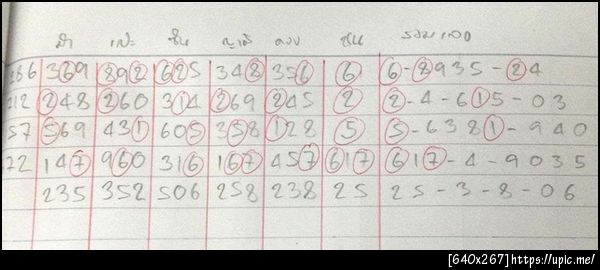 ม้า เปะ ซัน ญามี ดวง ชน รวมแดง
366 369 892 625 348 356 6 6-8935-24
212 248 260 314 269 245 2 2-4-615-03
57 569 431 605 358 128 5 5-6381-940
72 147 960 316 167 457 617 617-4-9035
235 352 506 258 238 25 25-3-8-06
[640x267] https://upic.me/